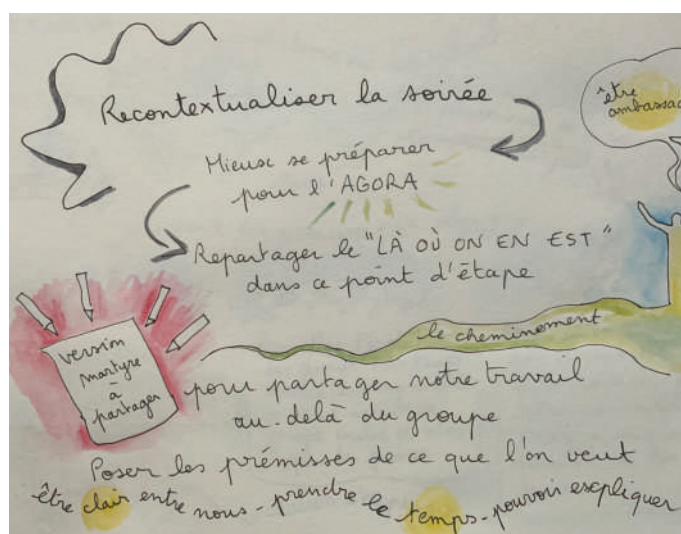 Recontextualiser la soirée
être
ambassad
Mieux se préparer
pour l'AGORA
Repartager le "LÀ OÙ ON EN EST"
dans ce point d'étape
le cheminement
version
martyre
à
partager
pour partager notre travail
au-delà du groupe
Poser les prémisses de ce que l'on veut
être clair entre nous - prendre le temps - pouvoir expliquer